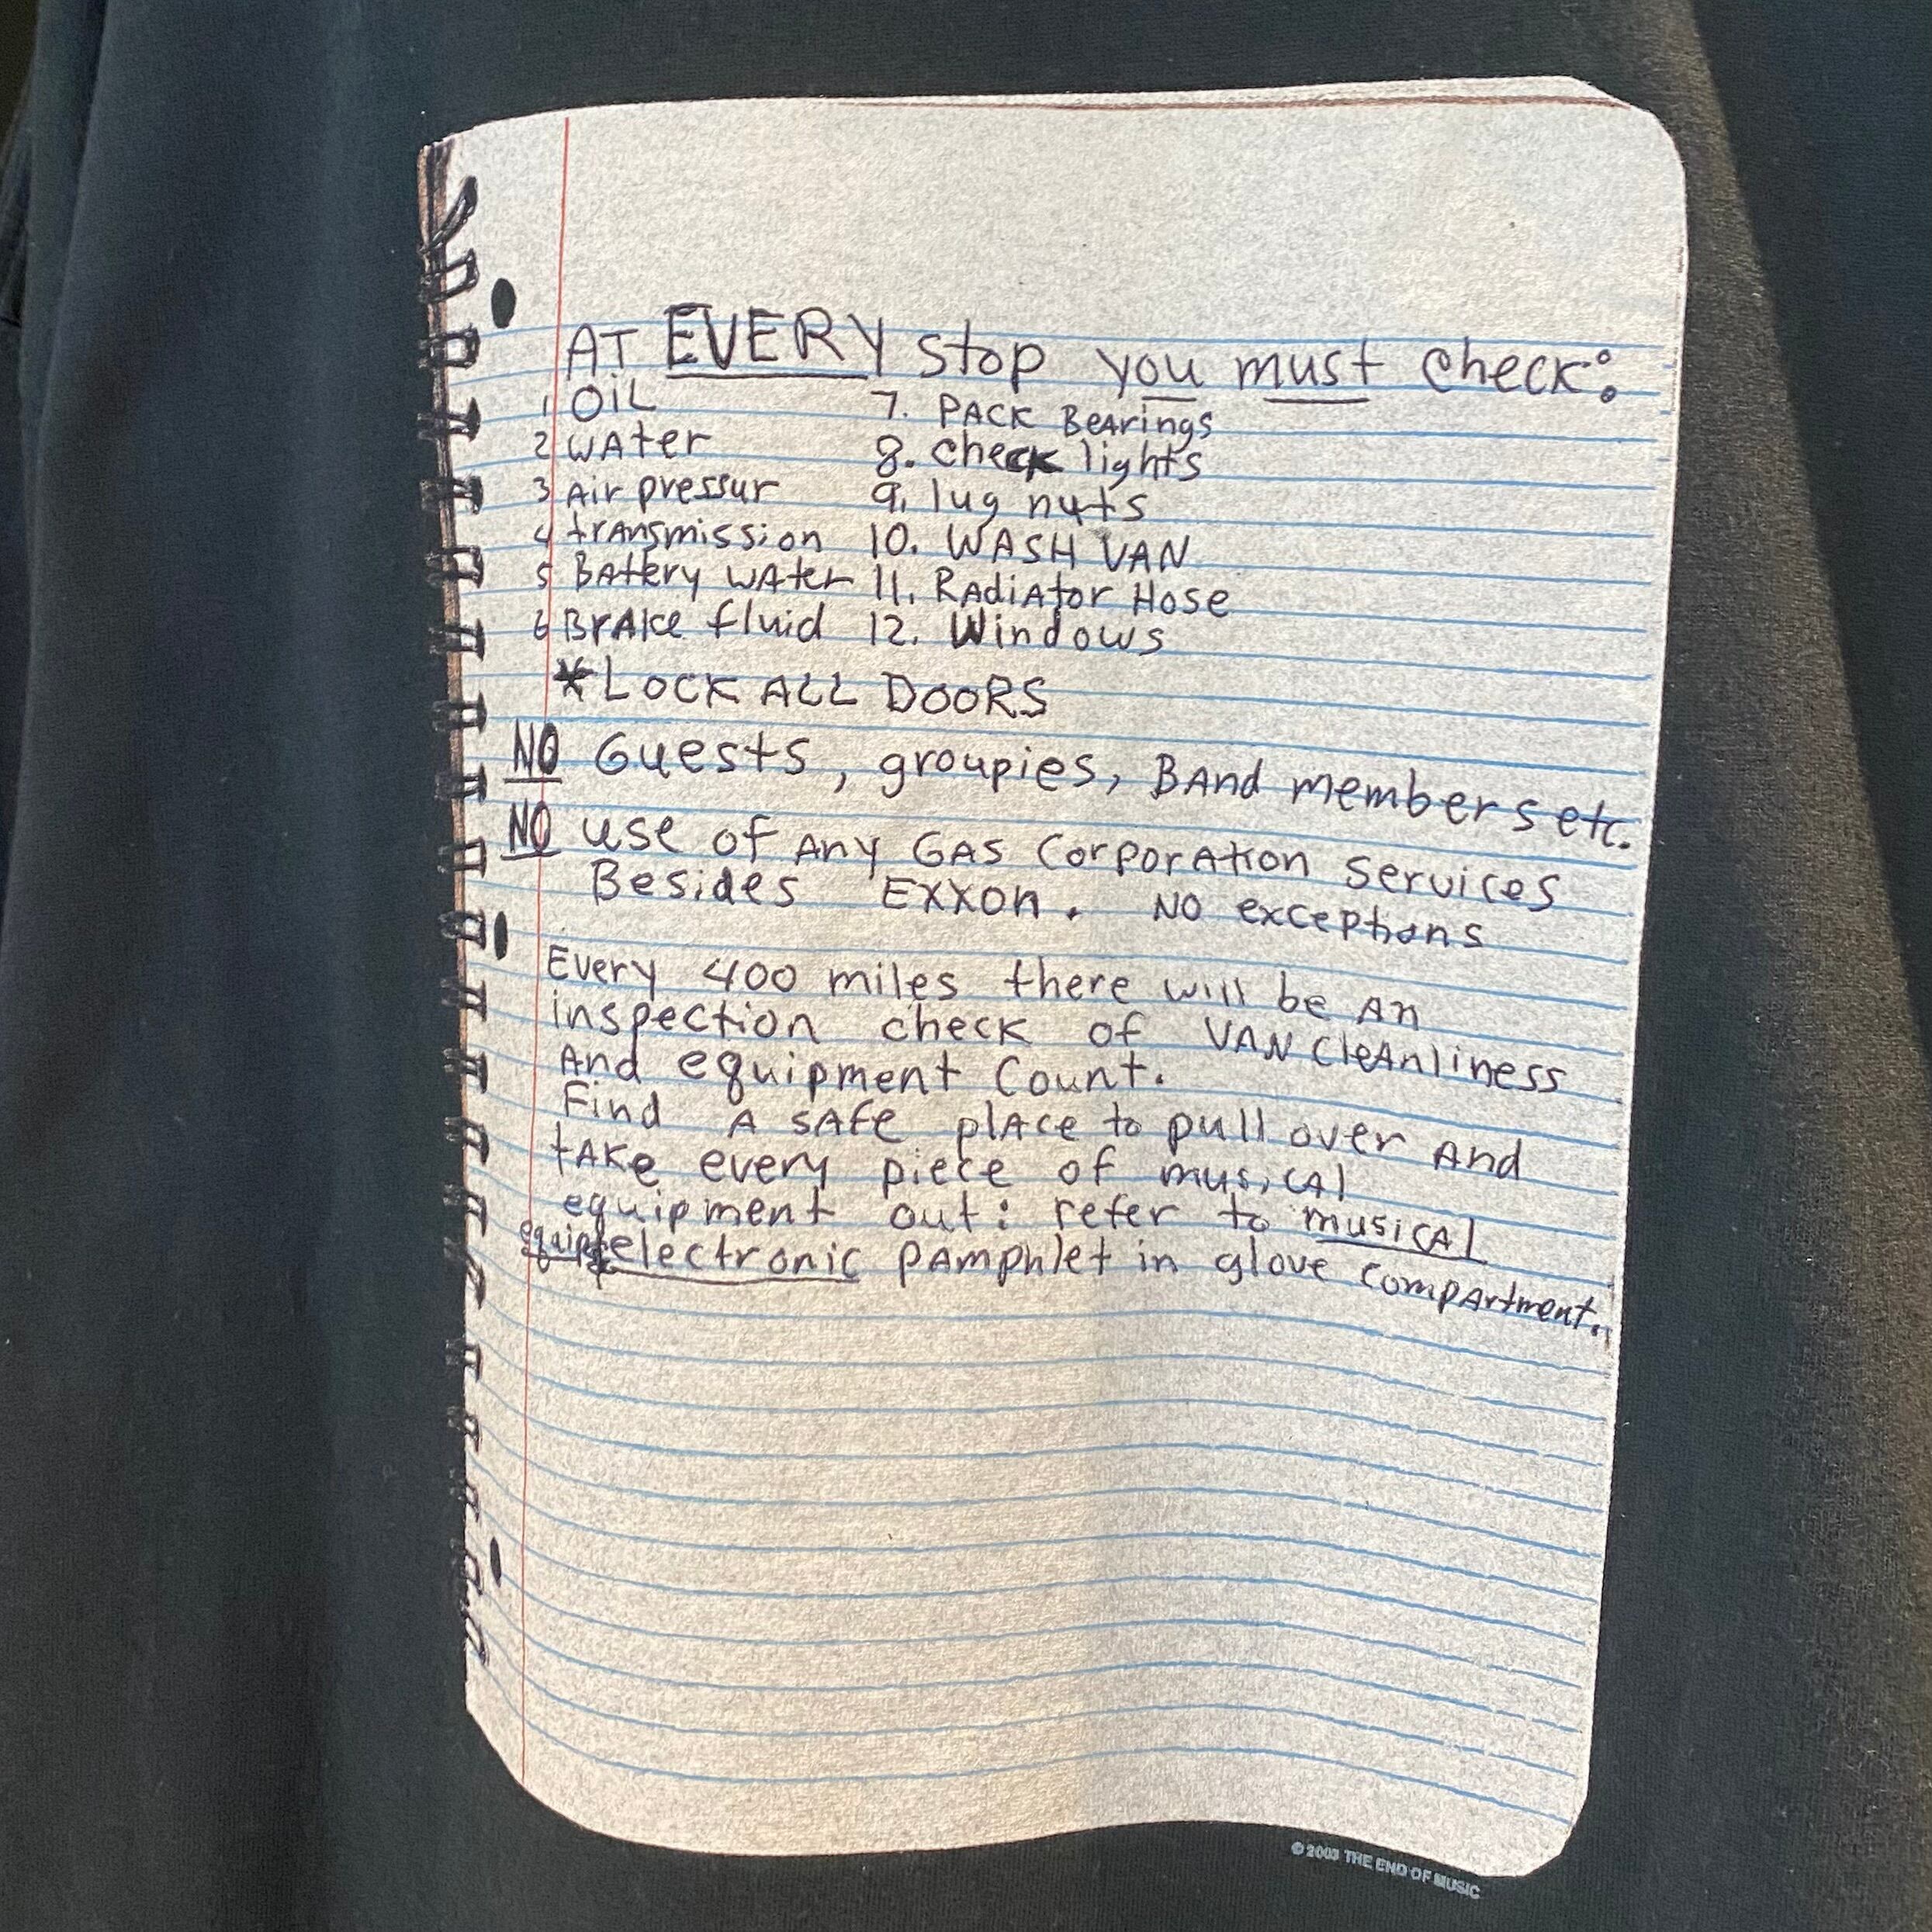 AT EVERY stop you must check:
1 OIL 7. PACK BeArings
2 WAter 8. check lights
3 Air pressur 9. lug nuts
4 trAnsmission 10. WASH VAN
5 BAttery WAter 11. RAdiAtor Hose
6 BrAke fluid 12. Windows
*LOCK ALL DOORS
NO Guests, groupies, BAnd members etc.
NO use of Any GAS CorporAtion Services
Besides EXXon. NO exceptions
Every 400 miles there will be An
inspection check of VAN CleAnliness
And equipment Count.
Find A sAfe plAce to pull over And
tAKe every piece of musicAl
equipment out: refer to musicAl
equip electronic pAmphlet in glove compArtment.
© 2003 THE END OF MUSIC